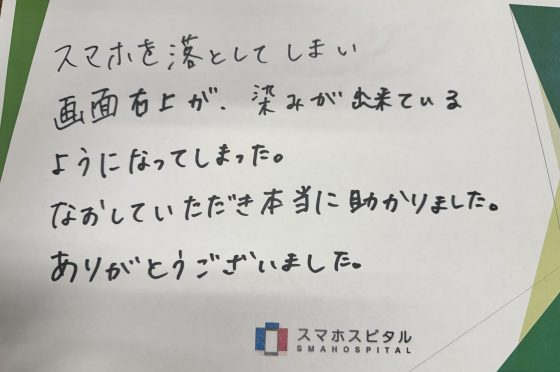 スマホを落としてしまい
画面右上が、染みが出来ている
ようになってしまった。
なおしていただき本当に助かりました。
ありがとうございました。
スマホスピタル
SMAHOSPITAL